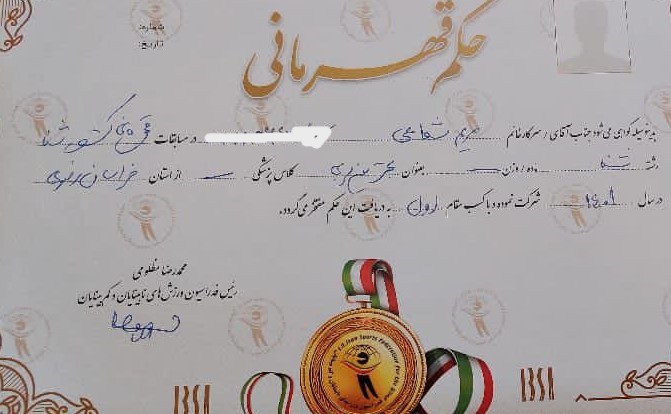 شماره:
تاریخ:
حکم قهرمانی
بدینوسیله گواهی می‌شود جناب آقای / سرکارخانم مریم شفاعی در مسابقات قهرمانی کشور شنا
رشته شنا ماده / وزن ـــ بعنوان کلاس پزشکی ـــ از استان خراسان رضوی
در سال ۱۴۰۱ شرکت نموده و با کسب مقام اول به دریافت این حکم مفتخر می‌گردد.
محمدرضا مظلومی
رئیس فدراسیون ورزش های نابینایان و کم بینایان
I.R.Iran Sports Federation For the Blind